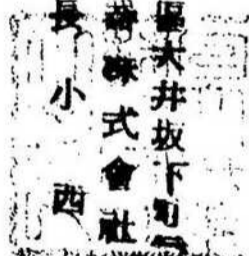 區大井坂下町
株式會社
長小西